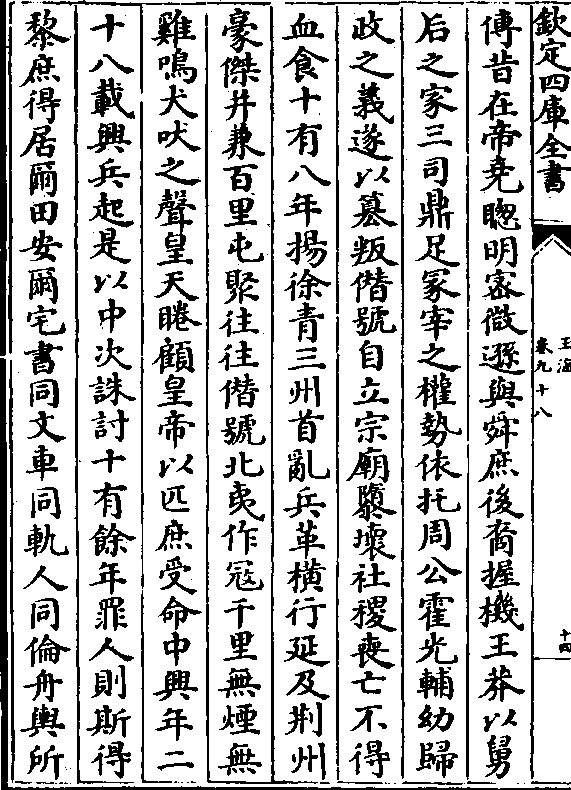 欽定四庫全書
玉海
卷九十八
十四
傳昔在帝堯聰明密微遜與舜庶後裔握機王莽以舅
后之家三司鼎足冢宰之權勢依托周公霍光輔幼歸
政之義遂以簒叛僣號自立宗廟隳壞社稷喪亡不得
血食十有八年揚徐青三州首亂兵革橫行延及荆州
豪傑并兼百里屯聚往往僣號北夷作冦千里無煙無
雞鳴犬吠之聲皇天睠顧皇帝以匹庶受命中興年二
十八載興兵起是以中次誅討十有餘年罪人則斯得
黎庶得居爾田安爾宅書同文車同軌人同倫舟輿所